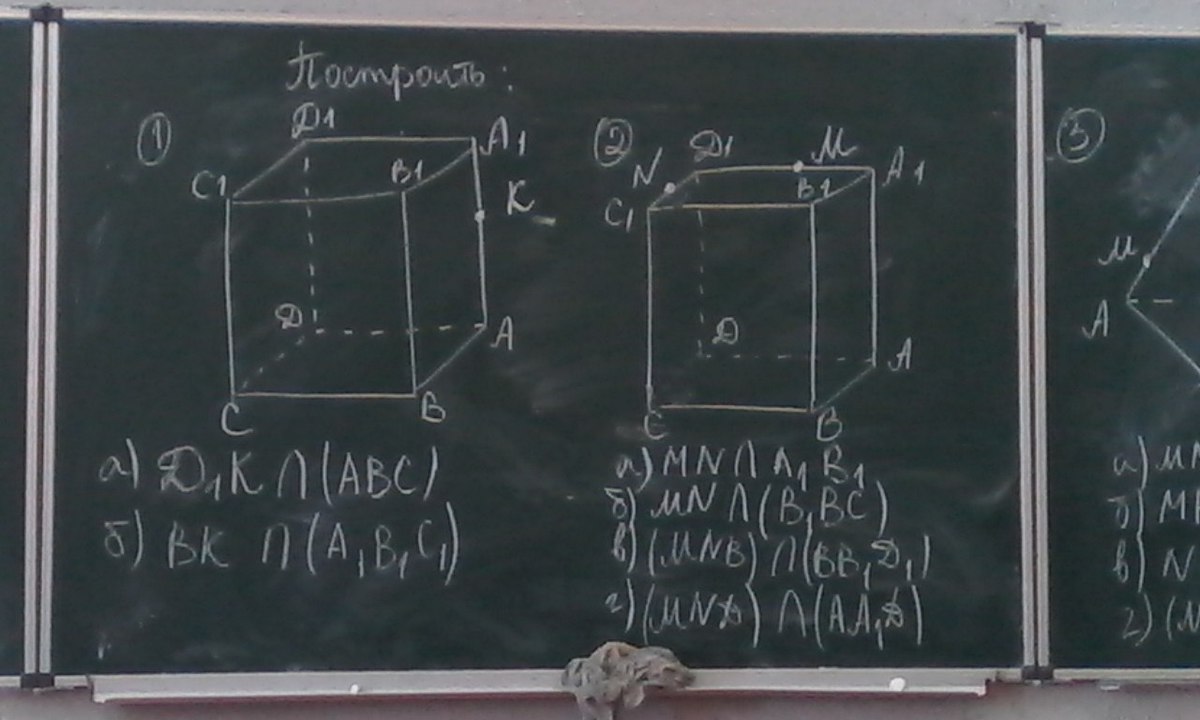 Построить:
①
Д1
A1
C1
B1
K
Д
A
C
B
а) Д₁K ∩ (ABC)
б) BK ∩ (A₁B₁C₁)
②
Д1
M
A1
N
B1
C1
Д
A
C
B
а) MN ∩ A₁B₁
б) MN ∩ (B₁BC)
в) (MNB) ∩ (BB₁Д₁)
г) (MNД) ∩ (AA₁Д)
③
M
A
а) M
б) M
в) N
г) (M